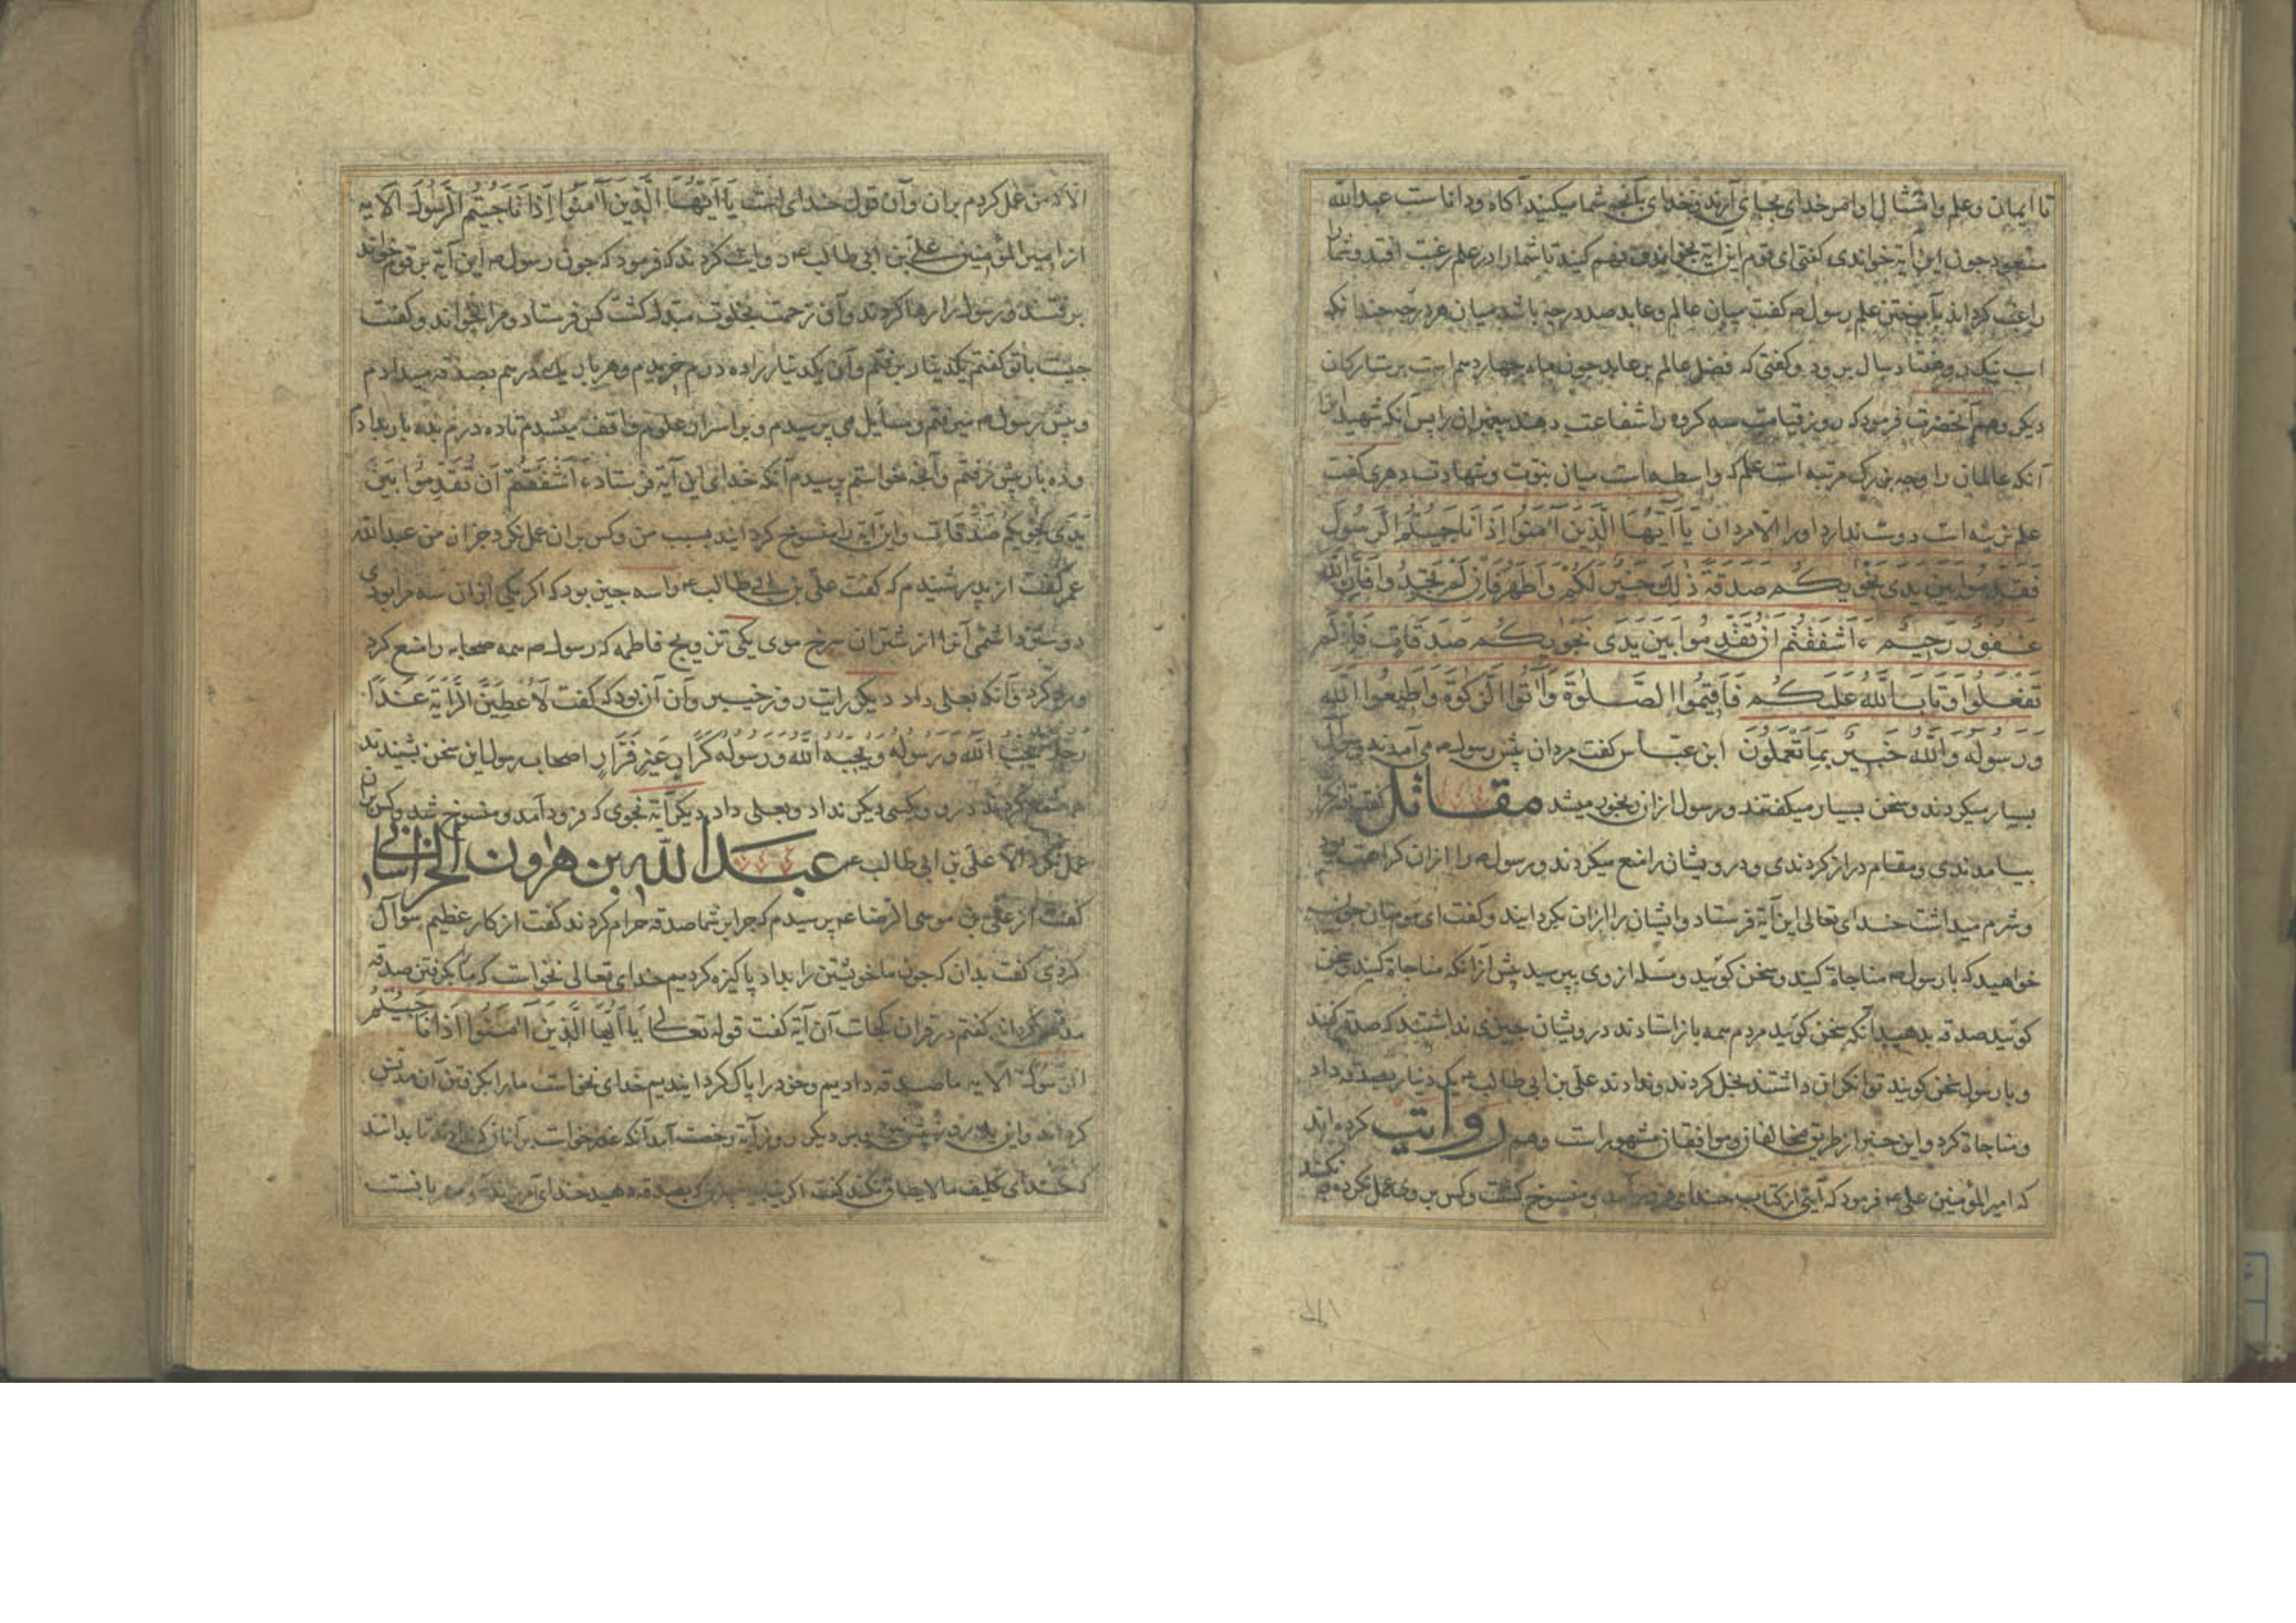 تا ایمان و علم و امتثال اوامر خدای بجای آرند و خدای بآنچه شما میکنید آکاه و داناست عبدالله
مسعود جون این آیة خواندی کفتی ای قوم این آیة بخوانید و فهم کنید تا شما را در علم رغبت افتد و شما را
راغب کرداند بآموختن علم رسول ص کفت میان عالم و عابد صد درجه باشد میان هر درجه جندانکه
اسب نیک رو هفتاد سال برود و کفتی که فضل عالم بر عابد جون ماه جهاردهم است بر ستارکان
دیکر و هم آنحضرت فرمود که روز قیامت سه کروه را شفاعت دهند پیغمبران را پس آنکه شهیدان
آنکه عالمان را وجه بزرک مرتبه است علم که واسطه است میان نبوت و شهادت دهری کفت
علم نریه است دوست ندارد او را الا مردان یَا اَیُّهَا الَّذِینَ اٰمَنُوا اِذَا نَاجَیْتُمُ الرَّسُولَ
فَقَدِّمُوا بَیْنَ یَدَی نَجْوٰیکُم صَدَقَةً ذٰلِکَ خَیْرٌ لَکُمْ وَاَطْهَرُ فَاِنْ لَمْ تَجِدُوا فَاِنَّ اللّٰهَ
غَفُورٌ رَحِیمٌ ءَاَشْفَقْتُمْ اَنْ تُقَدِّمُوا بَیْنَ یَدَی نَجْوٰیکُم صَدَقَاتٍ فَاِذْ لَمْ
تَفْعَلُوا وَتَابَ اللّٰهُ عَلَیکُم فَاَقِیمُوا الصَّلٰوةَ وَاٰتُوا الزَّکٰوةَ وَاَطِیعُوا اللّٰهَ
وَرَسُولَهُ وَاللّٰهُ خَبِیرٌ بِمَا تَعْمَلُونَ ابن عباس کفت مردان پیش رسول ص می آمدند و سوال
بسیار میکردند و سخن بسیار میکفتند و رسول ازان رنجور میشد مقاتل کفت توانکران
بیامدندی و مقام دراز کردندی و درویشان را منع میکردند و رسول ص را ازان کراهت بود
و شرم میداشت خدای تعالی این آیة فرستاد و ایشان را ازان بکردانید و کفت ای مومنان جون
خواهید که با رسول ص مناجاة کنید و سخن کوئید و مسئله از وی بپرسید پیش ازانکه مناجاة کنید و سخن
کوئید صدقه بدهید آنکه سخن کوئید مردم همه باز استادند درویشان جیزی نداشتند که صدقه کنند
و با رسول سخن کویند توانکران داشتند بخل کردند و ندادند علی بن ابی طالب ع یک دینار بصدقه داد
و مناجاة کرد و این خبر از طریق مخالفان و موافقان مشهور است و هم روایت کرده اند
که امیر المؤمنین علی ع فرمود که آیتی از کتاب خدای فرود آمد و منسوخ کشت و کس بر وی عمل نکرد و نکند
الا که من عمل کردم بران و آن قول خدای است یَا اَیُّهَا الَّذِینَ اٰمَنُوا اِذَا نَاجَیْتُمُ الرَّسُولَ الآیه
از امیر المؤمنین علی بن ابی طالب ع روایت کردند که فرمود که جون رسول ص این آیة بر قوم خواند
برفتند و رسول را رها کردند و آن زحمت بخلوت مبدل کشت کس فرستاد و مرا بخواند و کفت
جیست با تو کفتم یکدینار برفتم و آن یکدینار را ده درم خریدم و هر بار یک درهم بصدقه میدادم
و پیش رسول ص میرفتم و مسایل می پرسیدم و بر اسرار علوم واقف میشدم تا ده درم بده بار بدادم
و ده بار پیش رفتم و آنجه خواستم پرسیدم آنکه خدای این آیة فرستاد ءَاَشْفَقْتُمْ اَنْ تُقَدِّمُوا بَیْنَ
یَدَی نَجْوٰیکُم صَدَقَاتٍ و این آیة را منسوخ کردانید بسبب من و کس بران عمل نکرد جز از من عبدالله
عمر کفت از پدر شنیدم که کفت علی بن ابی طالب ع را سه جیز بود که اکر یکی ازان سه مرا بودی
دوستر داشتمی آنرا از شتران سرخ موی یکی تزویج فاطمه که رسول ص همه صحابه را منع کرد
و رد کرد و آنکه بعلی داد دیکر رایت روز خیبر و آن آن بود که کفت لَاُعْطِیَنَّ الرَّایَةَ غَدًا
رَجُلًا یُحِبُّ اللّٰهَ وَرَسُولَهُ وَیُحِبُّهُ اللّٰهُ وَرَسُولُهُ کَرَّارٍ غَیْرِ فَرَّارٍ اصحاب رسول این سخن بشنیدند
همه طمع کردند درو و بکسی دیکر نداد و بعلی داد دیکر آیة نجوی که فرود آمد و منسوخ شد و کس بران
عمل نکرد الا علی بن ابی طالب ع عبدالله بن هرون الخراسانی
کفت از علی بن موسی الرضا ع پرسیدم که جرا بر شما صدقه حرام کردند کفت از کار عظیم سوال
کردی کفت بدان که جون ما خویشتن را بداد پاکیزه کردیم خدای تعالی نخواست که ما بکرفتن صدقه
مدنس کرداند کفتم در قران کجاست آن آیة کفت قوله تعالی یَا اَیُّهَا الَّذِینَ اٰمَنُوا اِذَا نَاجَیْتُمُ
الرسول الآیه ما صدقه دادیم و خود را پاک کردانیدیم خدای نخواست ما را بکرفتن آن مدنس
کرداند و این آیة روز پیش بود پس دیکر روز آیة رخصت آمد آنکه عذر خواست بر آنان که ندادند تا بدانند
که خدای تکلیف مالایطاق نکند کفت اکر نیابید جیزی که بصدقه دهید خدای آمرزنده و مهربانست